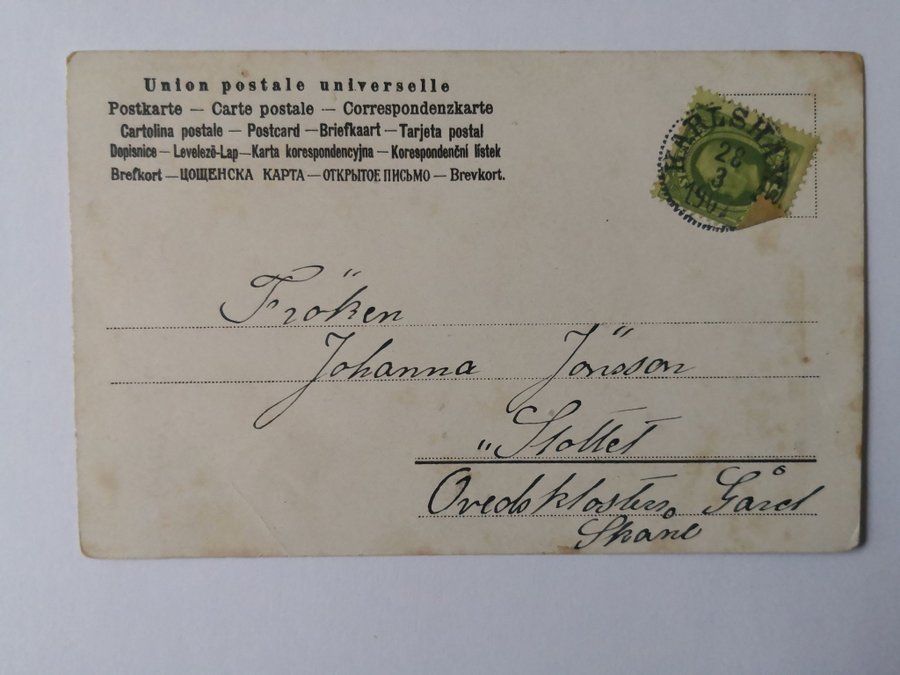 Union postale universelle
Postkarte — Carte postale — Correspondenzkarte
Cartolina postale — Postcard — Briefkaart — Tarjeta postal
Dopisnice — Levelezö-Lap — Karta korespondencyjna — Korespondenční lístek
Brefkort — ЦОЩЕНСКА КАРТА — ОТКРЫТОЕ ПИСЬМО — Brevkort.
KARLSHAMN
28
3
Fröken
Johanna Jönsson
"Slottet
Ovedskloster Gård
Skåne